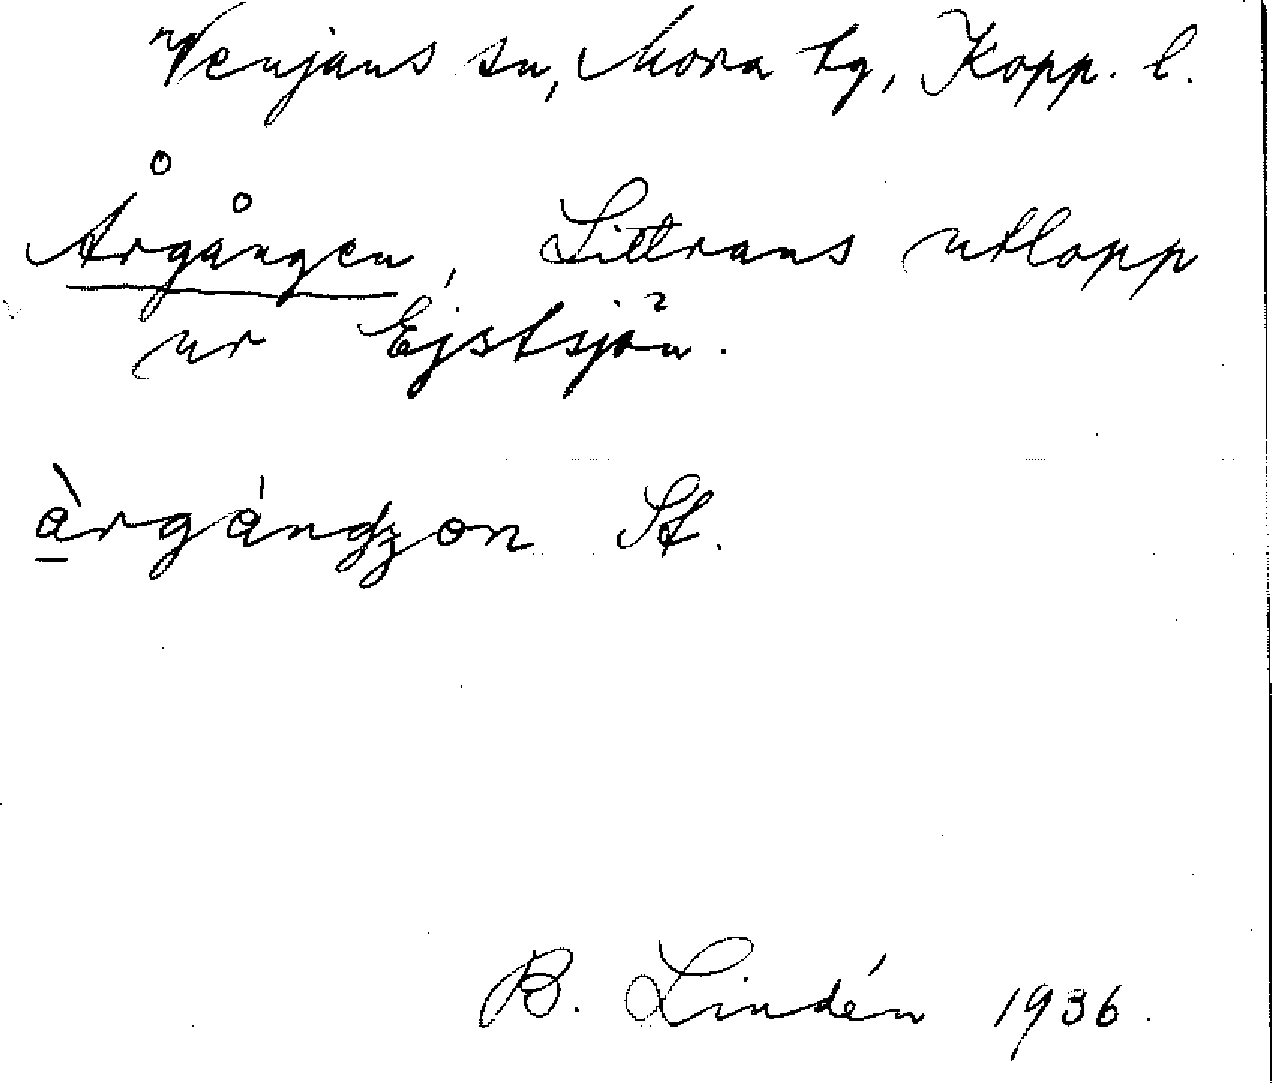 Venjans sn, Mora tg, Kopp. l.
Årgången, Littrans utlopp
ur Ejstsjön.
àrgángʒən St.
B. Lindén 1936.